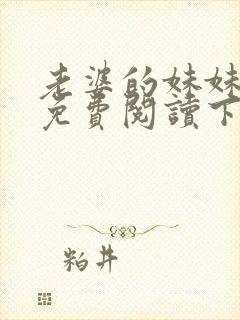 老婆的妹妹
免費閱讀下
粕井